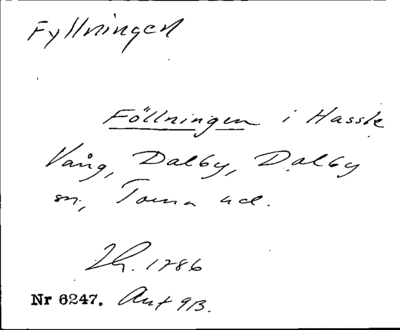 Fyllningen
Föllningen i Hassle
Vång, Dalby, Dalby
sn, Torna hd.
Lh. 1786
Nr 6247. Akt 9B.